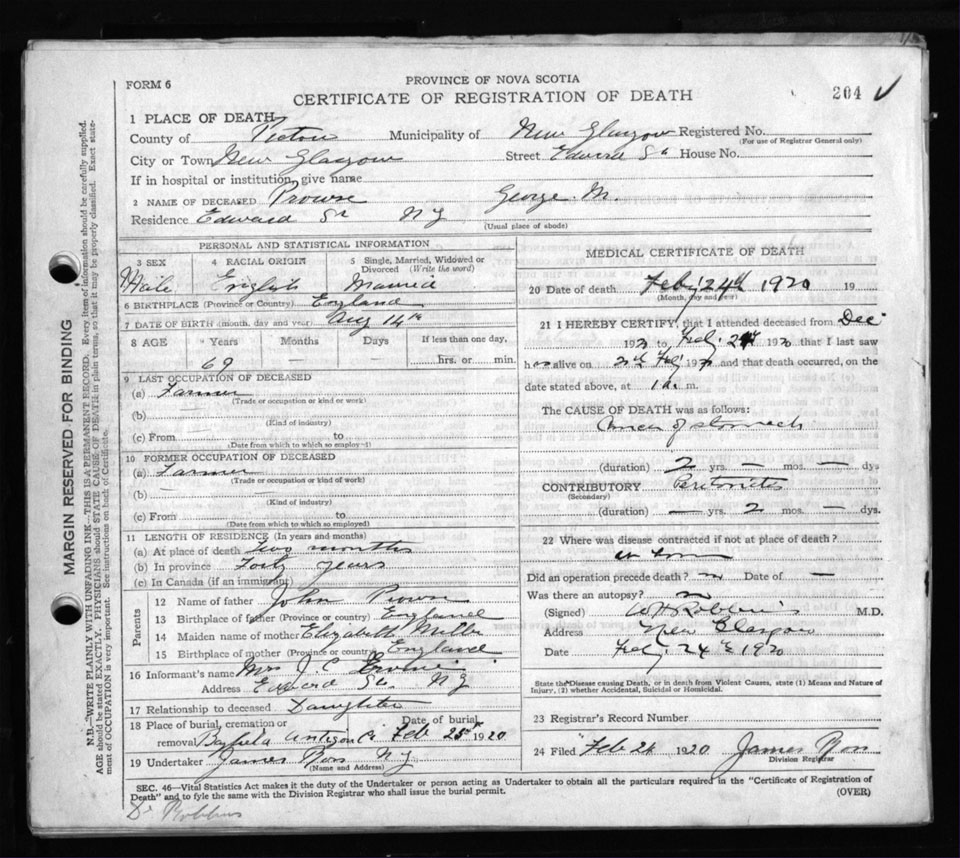 FORM 6
PROVINCE OF NOVA SCOTIA
CERTIFICATE OF REGISTRATION OF DEATH
204
1 PLACE OF DEATH
County of Pictou Municipality of New Glasgow Registered No.
(For use of Registrar General only)
City or Town New Glasgow Street Edward St House No.
If in hospital or institution, give name
2 NAME OF DECEASED Prowse George M.
Residence Edward St N G
(Usual place of abode)
PERSONAL AND STATISTICAL INFORMATION
3 SEX 4 RACIAL ORIGIN 5 Single, Married, Widowed or Divorced (Write the word)
Male English Married
6 BIRTHPLACE (Province or Country) England
7 DATE OF BIRTH (month, day and year) Aug 14th
8 AGE Years Months Days If less than one day,
69 — — hrs. or min.
9 LAST OCCUPATION OF DECEASED
(a) Farmer
(Trade or occupation or kind or work)
(b)
(Kind of industry)
(c) From to
(Date from which to which so employ-)
10 FORMER OCCUPATION OF DECEASED
(a) Farmer
(Trade or occupation or kind of work)
(b)
(Kind of industry)
(c) From to
(Date from which to which so employed)
11 LENGTH OF RESIDENCE (In years and months)
(a) At place of death Two months
(b) In province Forty years
(c) In Canada (if an immigrant)
Parents
12 Name of father John Prowse
13 Birthplace of father (Province or country) England
14 Maiden name of mother Elizabeth Miller
15 Birthplace of mother (Province or country) England
16 Informant's name Mrs J. C.
Address Edward St. N G
17 Relationship to deceased Daughter
18 Place of burial, cremation or removal Bayfield Antigon Co Date of burial Feb 25th 1920
19 Undertaker James Ross N G
(Name and Address)
MEDICAL CERTIFICATE OF DEATH
20 Date of death Feby 24th 1920 19
(Month, day and year)
21 I HEREBY CERTIFY, that I attended deceased from Dec
to Feb. 1920 that I last saw
h alive on Feby and that death occurred, on the
date stated above, at m.
The CAUSE OF DEATH was as follows:
Cancer of stomach
(duration) 2 yrs. — mos. — dys
CONTRIBUTORY Peritonitis
(Secondary)
(duration) — yrs. 2 mos. — dys.
22 Where was disease contracted if not at place of death?
at home
Did an operation precede death? no Date of —
Was there an autopsy? no
(Signed) M.D.
Address New Glasgow
Date Feby 24th 1920
State the Disease causing Death, or in death from Violent Causes, state (1) Means and Nature of
Injury, (2) whether Accidental, Suicidal or Homicidal.
23 Registrar's Record Number
24 Filed Feb 24 1920 James Ross
Division Registrar
SEC. 46—Vital Statistics Act makes it the duty of the Undertaker or person acting as Undertaker to obtain all the particulars required in the "Certificate of Registration of
Death" and to fyle the same with the Division Registrar who shall issue the burial permit. (OVER)
Dr Robbins
MARGIN RESERVED FOR BINDING
N.B.—WRITE PLAINLY WITH UNFADING INK—THIS IS A PERMANENT RECORD. Every item of information should be carefully supplied.
AGE should be stated EXACTLY. PHYSICIANS should STATE CAUSE OF DEATH in plain terms, so that it may be properly classified. Exact state-
ment of OCCUPATION is very important. See instructions on back of Certificate.